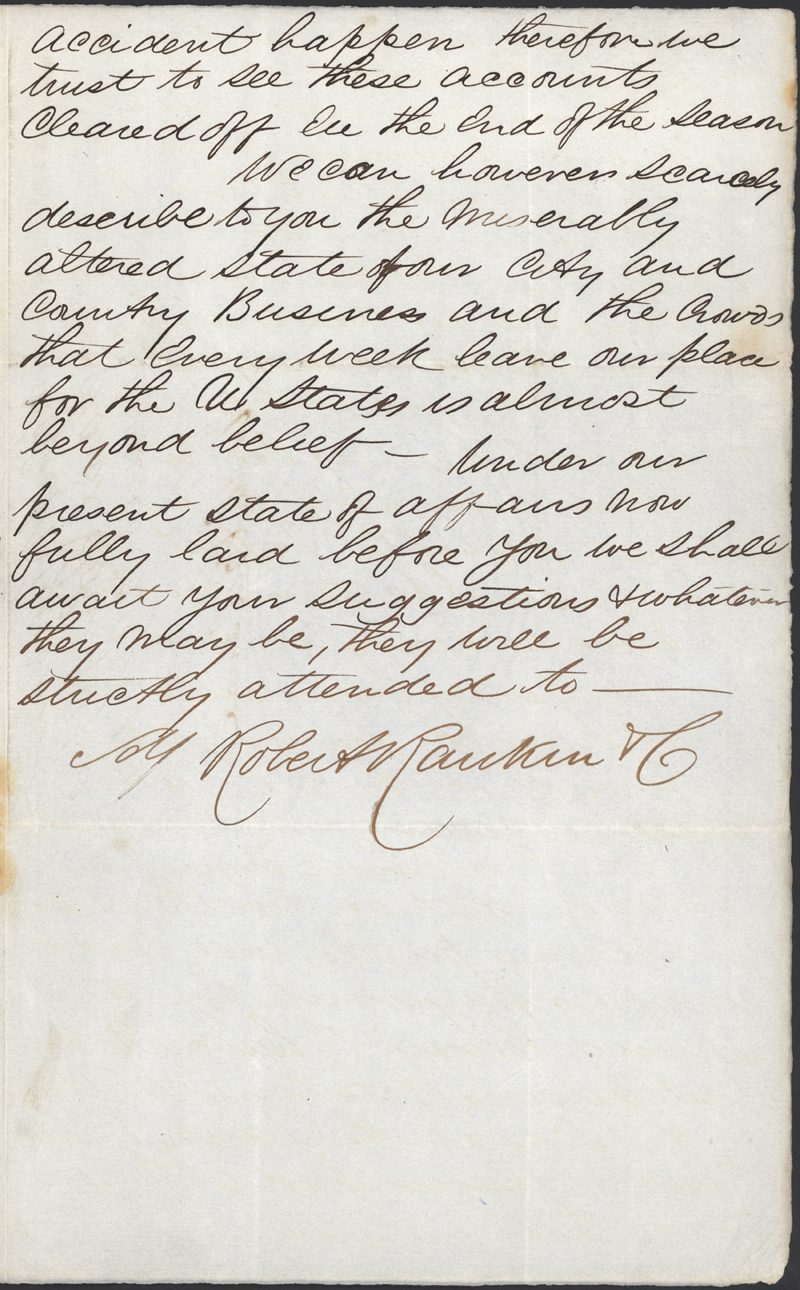 accident happen therefore we
trust to see these accounts
Cleared off ere the End of the Season
We can however scarcely
describe to you the Miserably
altered state of our City and
Country Business and the Crowds
that Every Week leave our place
for the U. States is almost
beyond belief — Under our
present state of affairs now
fully laid before you we shall
await your suggestions & whatever
they may be, they will be
strictly attended to —
Robert Rankin & C